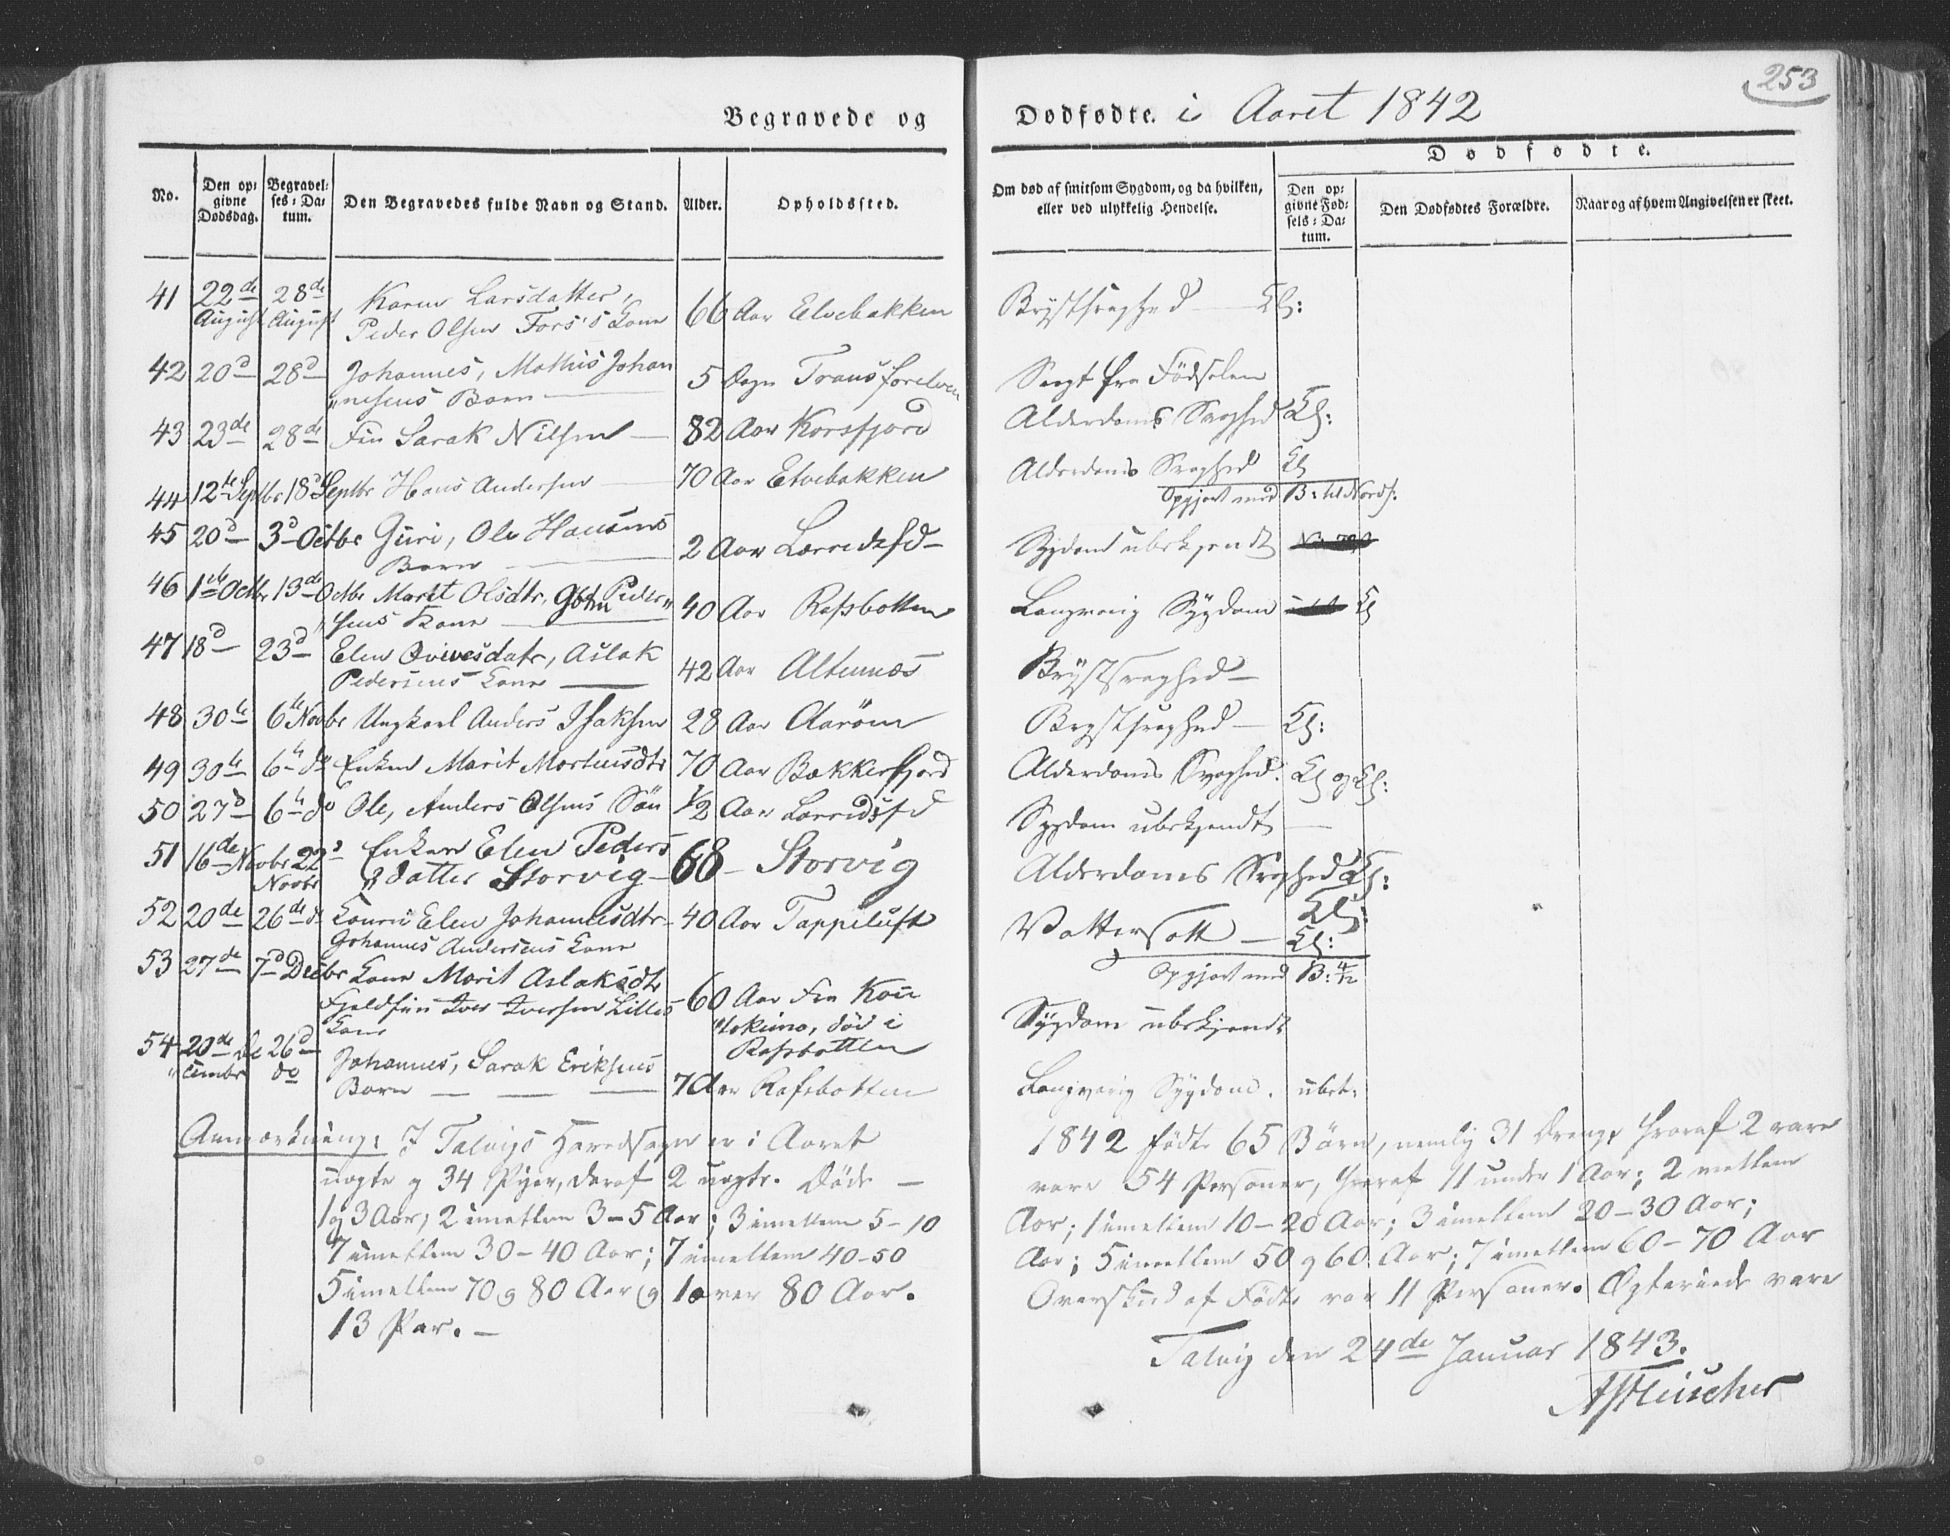 253
Begravede og Dødfødte. i Aaret 1842
Dødfødte.
No.
Den op:
givne
Dødsdag.
Begravel:
ses-Da:
tum.
Den Begravedes fulde Navn og Stand.
Alder.
Opholdssted.
Om død af smitsom Sygdom, og da hvilken,
eller ved ulykkelig Hendelse.
Den op:
givne Fød:
sels-Da:
tum.
Den Dødfødtes Forældre.
Naar og af hvem Angivelsen er skeet.
41 22de 28de Karen Larsdatter,
August August Peder Olsen Fors's Kone 66 Aar Elvebakken Brystsvaghed — Kl:
42 20d 28d Johannes, Mathis Johan 5 Dage Svagt fra Fødselen
"nesens Barn
43 23de 28de Fin Sarak Nilsen — 82 Aar Korsfjord Alderdoms Svaghed Kl:
44 12te Septbr 18d Septbr Hans Andersen 70 Aar Elvebakken Alderdoms Svaghed Kl
Opgjort med B: til Nordf:
45 20d 3d Octbr Guri, Ole Hansens 2 Aar Sygdom ubekjendt
Barn
46 1ste Octbr 13de Octbr Marit Olsdtr, Gbmd Peder"
"sens Kone 40 Aar Rafsbotten Langvarig Sygdom Kl
47 18d 23d Elen Qvivesdatr, Aslak
Pedersens Kone 42 Aar Altennæs Brystsvaghed —
48 30te 6te Novbr Ungkarl Anders Isaksen 28 Aar Aarøen Brystsvaghed — Kl:
49 30te 6te do Enken Marit Mortensdtr 70 Aar Bækkerfjord Alderdoms Svaghed. Kl og Kl:
50 27d 6te do Ole, Anders Olsens Søn 1/2 Aar Sygdom ubekjendt —
51 16de Novbr 22d Enken Elen Peders
Novbr datter Storvig — 68 — Storvig Alderdoms Svaghed Kl:
52 20de 26de do Konen Elen Johannesdtr 40 Aar Tappeluft Vattersott — Kl:
Johannes Andersens Kone Kl:
Opgjort med B: 4/12
53 27de 7d Decbr Kone Marit Aslaksdtr
Fjeldfin Iver Iversen Lilles 60 Aar Fra Kou
Kone "tokeino, død i Sygdom ubekjendt
Rafsbotten
54 20de De 26d
"cembr do Johannes, Sarak Eriksens
Barn — — — Rafsbotten Langvarig Sygdom. ubek:
Anmærkning: I Talvigs Hovedsogn er i Aaret 1842 fødte 65 Børn, nemlig 31 Drenge hvoraf 2 vare
uægte og 34 Piger, deraf 2 uægte. Døde — vare 54 Personer, hvoraf 11 under 1 Aar; 2 mellem
1 og 3 Aar; 2 imellem 3–5 Aar; 3 imellem 5–10 Aar; 1 imellem 10–20 Aar; 3 imellem 20–30 Aar;
7 imellem 30–40 Aar; 7 imellem 40–50 Aar; 5 imellem 50 og 60 Aar; 7 imellem 60–70 Aar
5 imellem 70 og 80 Aar og 1 over 80 Aar. Overskud af Fødte var 11 Personer. Ægteviede vare
13 Par. —
Talvig den 24de Januar 1843.